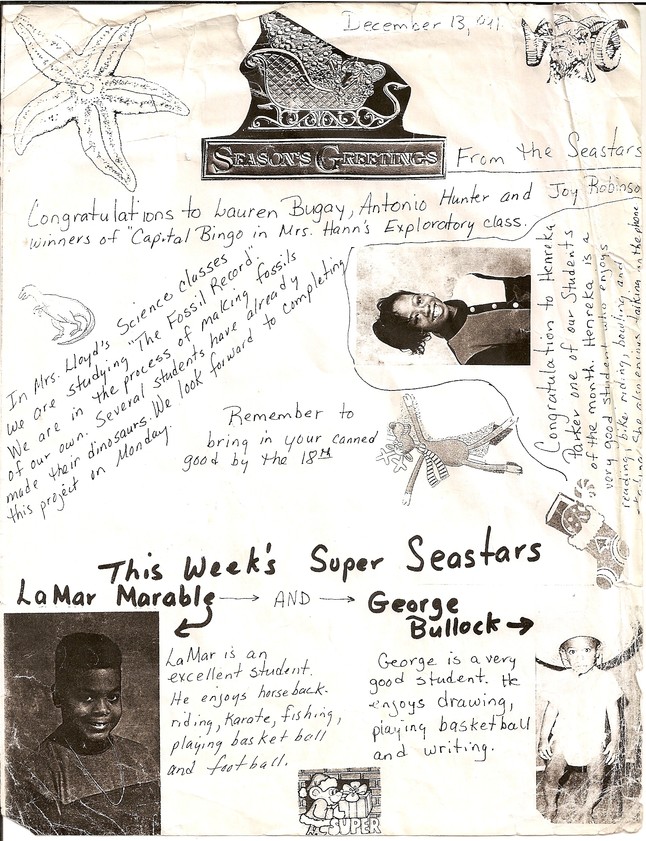 December 13,
SEASON'S GREETINGS
From the Seastars
Congratulations to Lauren Bugay, Antonio Hunter and Joy Robinso
winners of "Capital Bingo in Mrs. Hann's Exploratory class.
In Mrs. Lloyd's Science classes
we are studying "The Fossil Record".
We are in the process of making fossils
of our own. Several students have already
made their dinosaurs. We look forward to completing
this project on Monday.
Congratulation to Henreka
Parker one of our Students
of the month. Henreka is a
very good student who enjoys
reading, bike riding, bowling and
She also enjoys talking on the phone
Remember to
bring in your canned
good by the 18th
This Week's Super Seastars
LaMar Marable → AND → George
Bullock →
LaMar is an
excellent student.
He enjoys horseback-
riding, Karate, fishing,
playing basketball
and football.
George is a very
good student. He
enjoys drawing,
playing basketball
and writing.
SUPER